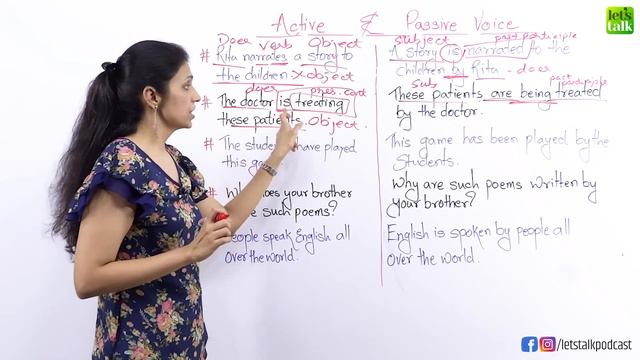 Active & Passive Voice
let's talk
Doer verb Object
# Rita narrates a story to
the children. X object
doer pres. cont
# The doctor is treating
these patients. Object.
# The have played
this
# your brother
such poems?
People speak English all
over the world.
subject past participle
A story is narrated to the
children by Rita - doer
Sub past participle
These patients are being treated
by the doctor.
This game has been played by the
Students.
Why are such poems written by
your brother?
English is spoken by people all
over the world.
/letstalkpodcast